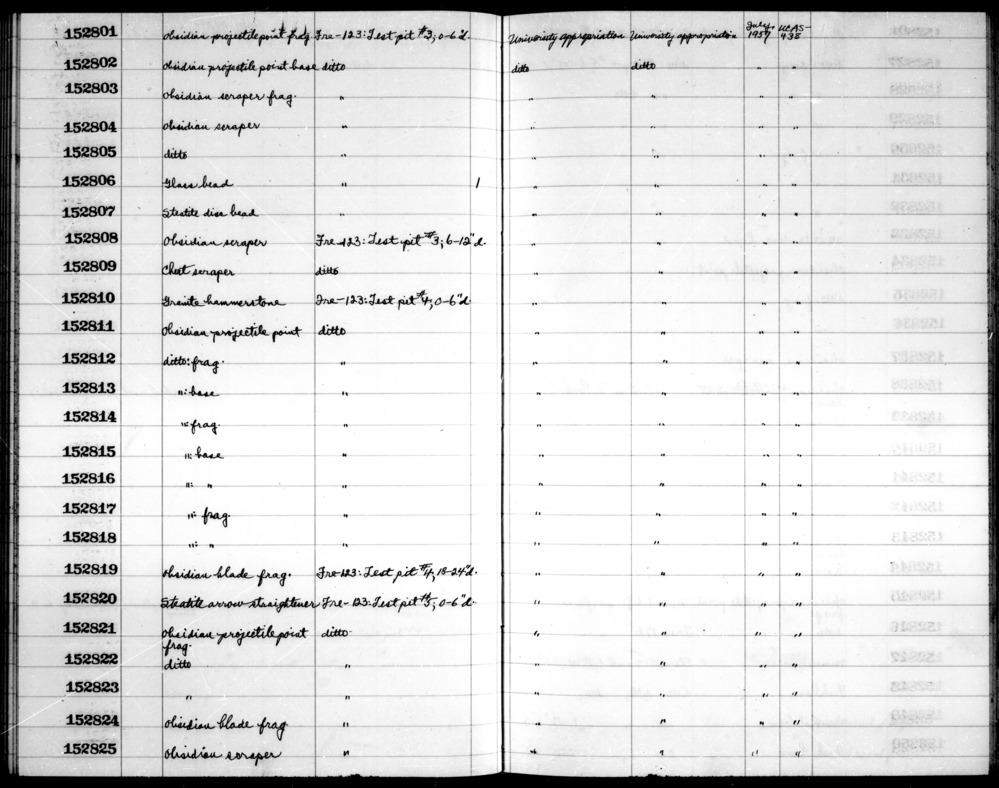 152801 Obsidian projectile point frag. Fre-123: Test pit #3; 0-6"d. University appropriation University appropriation July, 1957 UCAS-435
152802 Obsidian projectile point base ditto ditto ditto " "
152803 Obsidian scraper frag. " " " " "
152804 Obsidian scraper " " " " "
152805 ditto " " " " "
152806 Glass bead " 1 " " " "
152807 Steatite disc bead " " " " "
152808 Obsidian scraper Fre-123: Test pit #3; 6-12"d. " " " "
152809 Chert scraper ditto " " " "
152810 Granite hammerstone Fre-123: Test pit #4; 0-6"d. " " " "
152811 Obsidian projectile point ditto " " " "
152812 ditto: frag. " " " " "
152813 ": base " " " " "
152814 ": frag. " " " " "
152815 ": base " " " " "
152816 ": " " " " " "
152817 ": frag. " " " " "
152818 ": " " " " " "
152819 Obsidian blade frag. Fre-123: Test pit #4; 18-24"d. " " " "
152820 Steatite arrow staightener Fre-123: Test pit #5; 0-6"d. " " " "
152821 Obsidian projectile point ditto " " " "
frag.
152822 ditto " " " " "
152823 " " " " " "
152824 Obsidian blade frag. " " " " "
152825 Obsidian scraper " " " " "